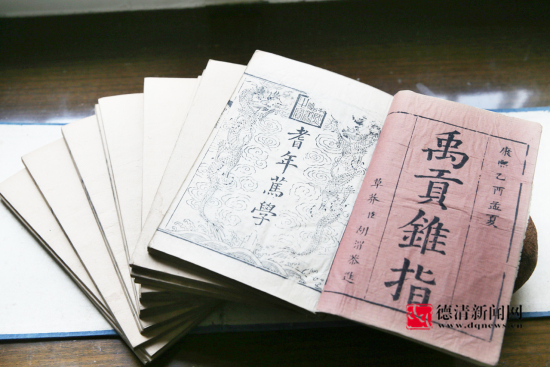 康熙乙酉孟夏
禹貢錐指
草莽臣胡渭恭進
耆年篤學
德清新闻网
www.dqnews.cn